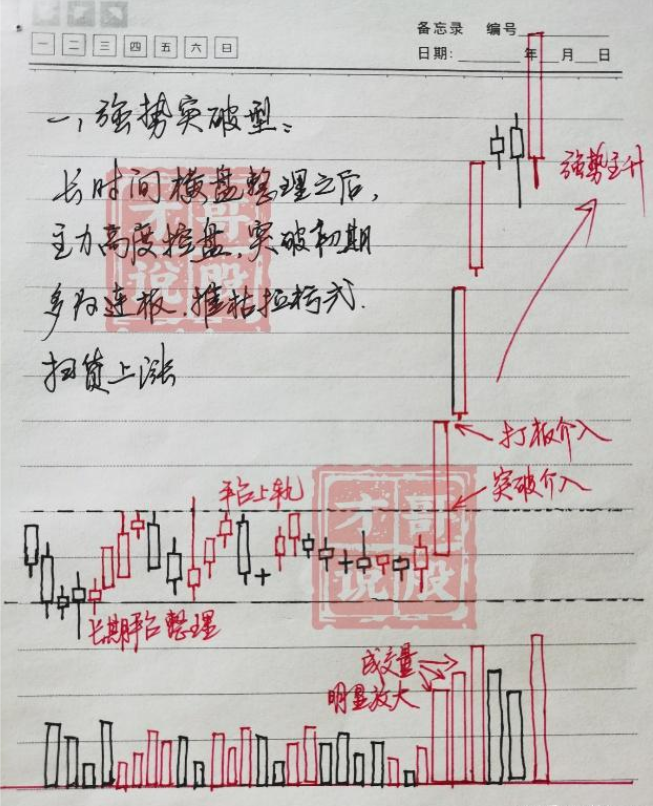 备忘录 编号
一 二 三 四 五 六 日
日期: 年 月 日
一, 强势突破型:
长时间横盘整理之后,
主力高度控盘.突破初期
多为连板.摧枯拉朽式.
扫货上涨
才哥
说股
强势主升
打板介入
突破介入
平台上轨
才哥
说股
长期平台整理
成交量
明显放大